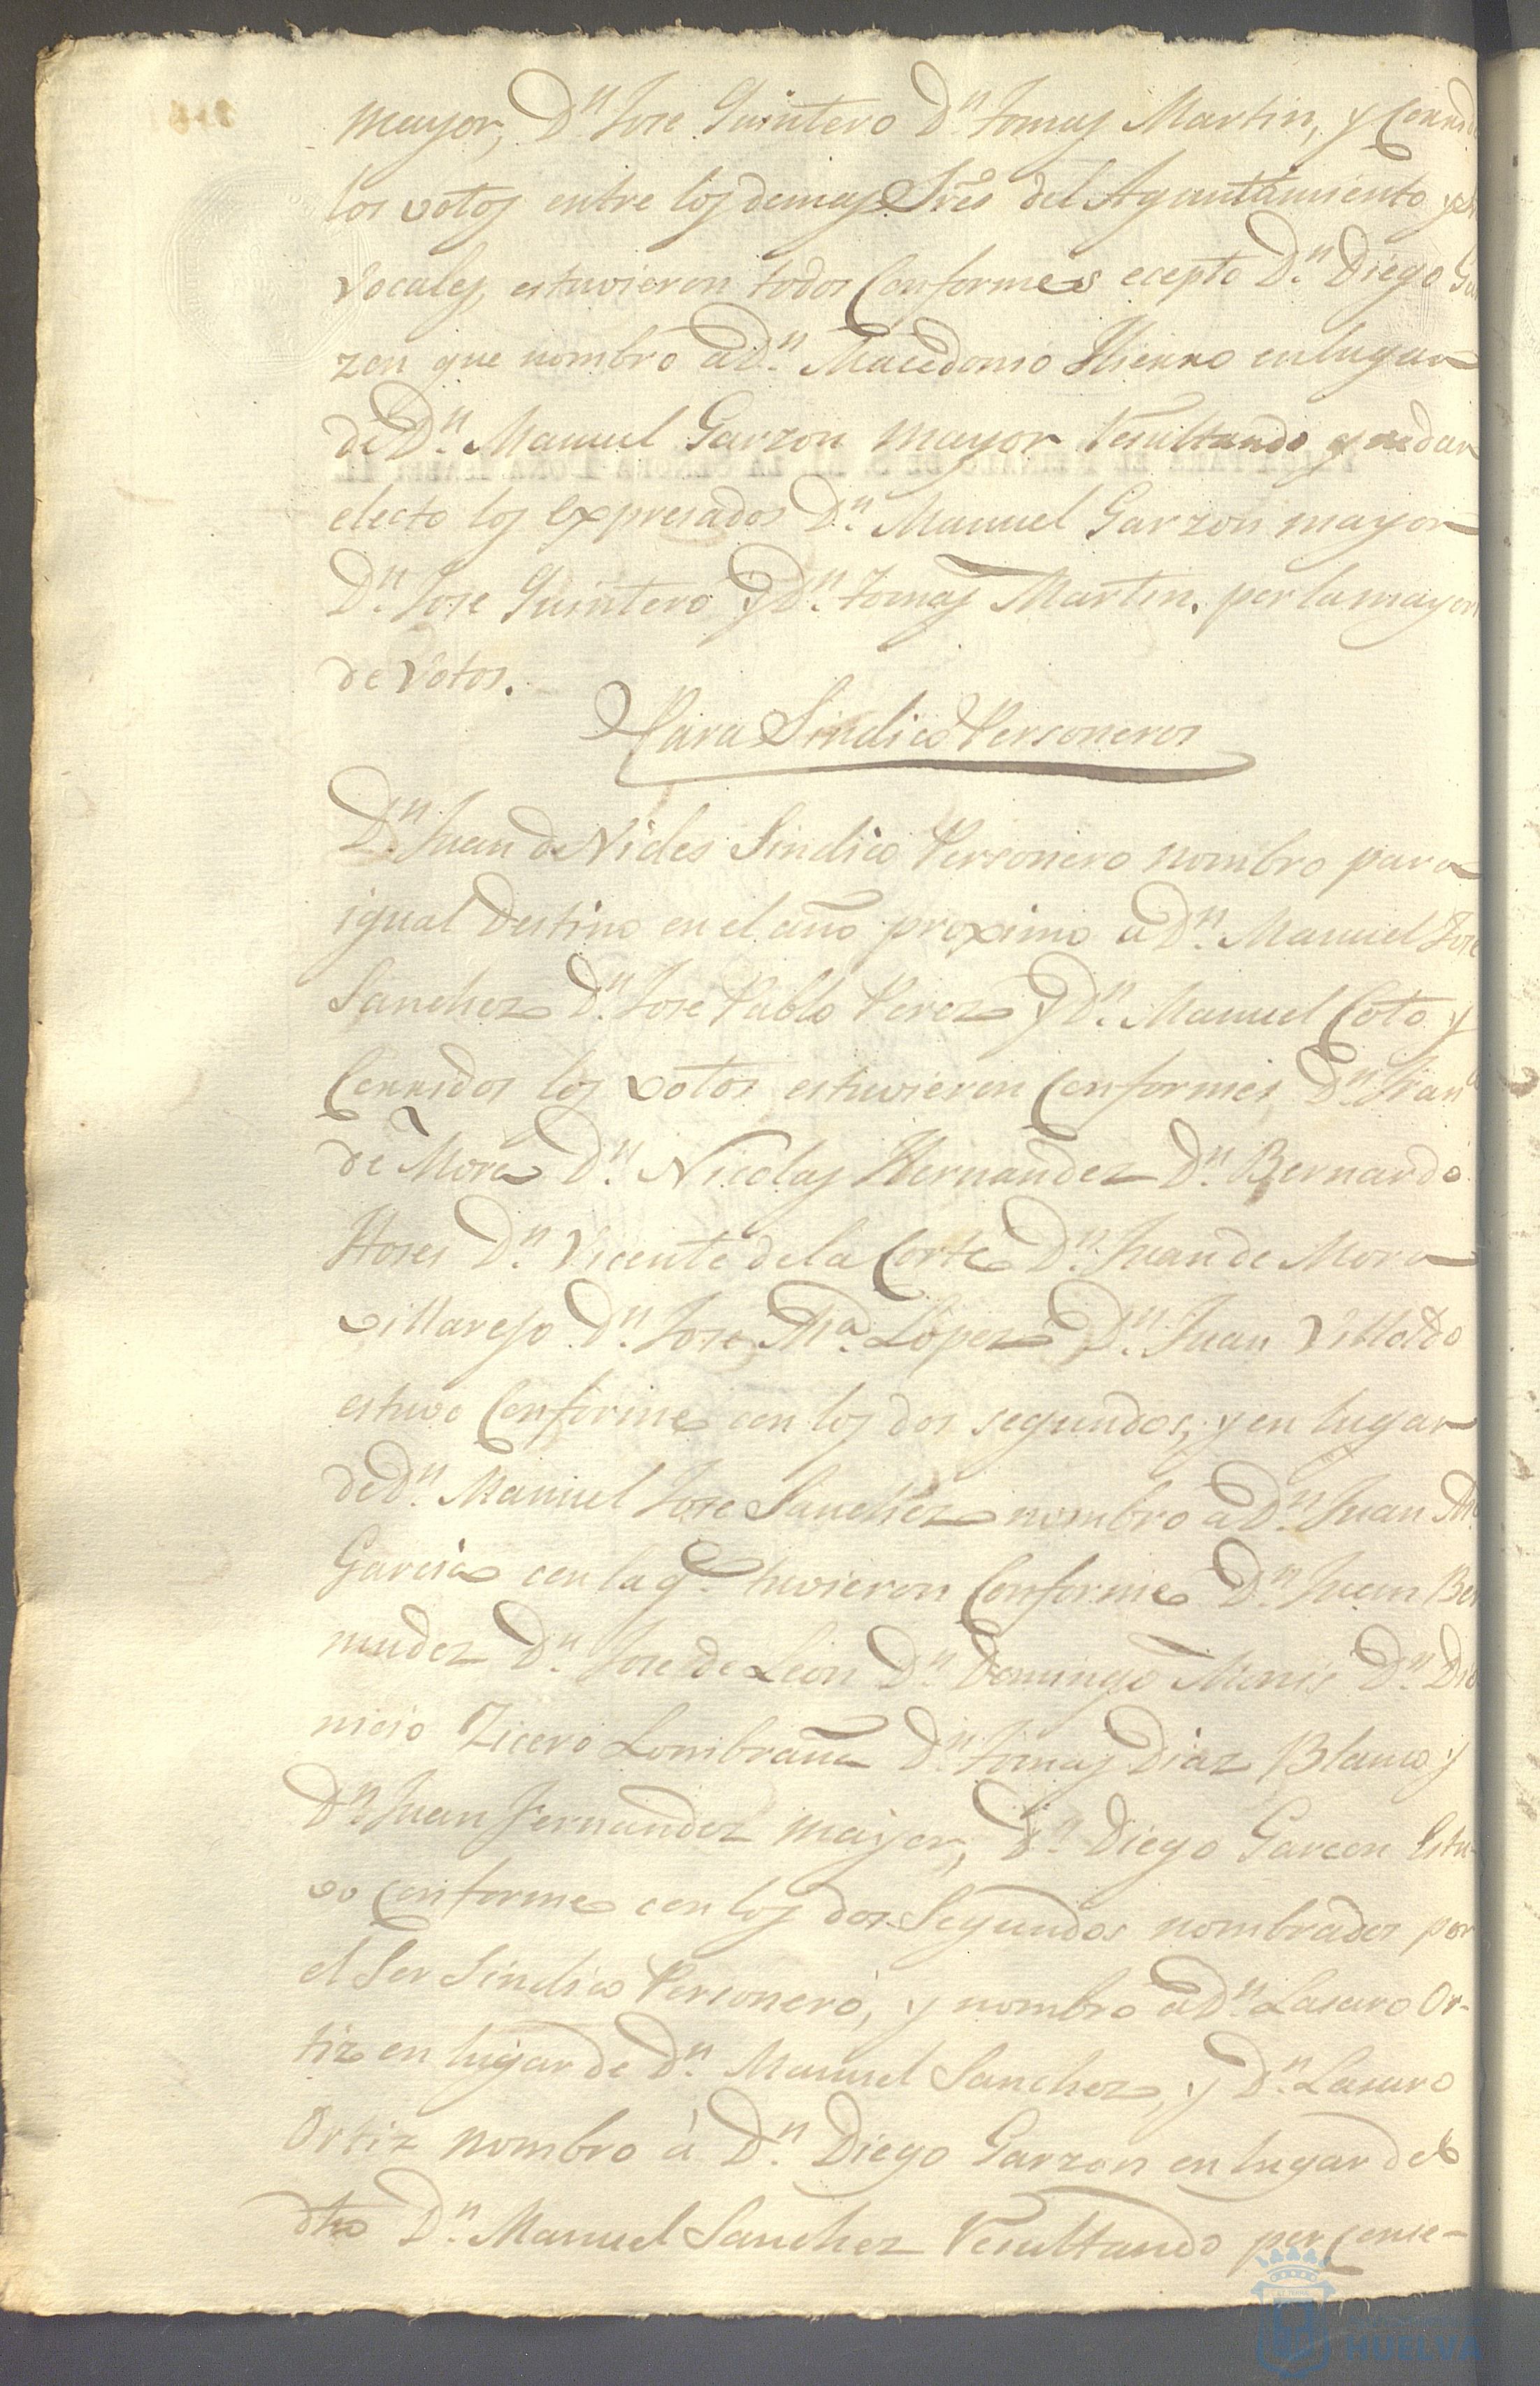 mayor, Dn. Jose Quintero Dn. Tomas Martin, y Corrido
los votos entre los demas Sres del Ayuntamiento y
Vocales, estuvieron todos Conformes ecepto Dn. Diego Gar
zon que nombro a Dn. Macedonio Hierro en lugar
de Dn. Manuel Garzon mayor Resultando quedar
electo los expresados Dn. Manuel Garzon mayor
Dn. Jose Quintero y Dn. Tomas Martin. por la mayor
de Votos.
Para Sindico Personeros
Dn. Juan de Vides Sindico Personero nombro para
igual Destino en el año proximo a Dn. Manuel Jose
Sanchez Dn. Jose Pablo Perez y Dn. Manuel Coto y
Corridos los votos estuvieron Conformes, Dn. Franco
de Mora Dn. Nicolas Hernandez Dn. Bernardo
Hoses Dn. Vicente de la Corte Dn. Juan de Mora
villarejo Dn. Jose Ma. Lopez Dn. Juan Villoldo
estuvo Conforme con los dos segundos, y en lugar
de Dn. Manuel Jose Sanchez nombro a Dn. Juan
Garcia con la q. tuvieron Conforme Dn. Juan Ber
mudez Dn. Jose de Leon Dn. Domingo Monis Dn. Dio
nicio Ticero Lombraña Dn. Tomas Diaz Blanco y
Dn. Juan Fernandez mayor, Dn. Diego Garcon Estu-
vo Conforme con los dos Segundos nombrados por
el Sor Sindico Personero, y nombro a Dn. Lasaro Or-
tiz en lugar de Dn. Manuel Sanchez, y Dn. Lasaro
Ortiz nombro à Dn. Diego Garzon en lugar del
dho Dn. Manuel Sanchez Resultando por Conse-
HUELVA